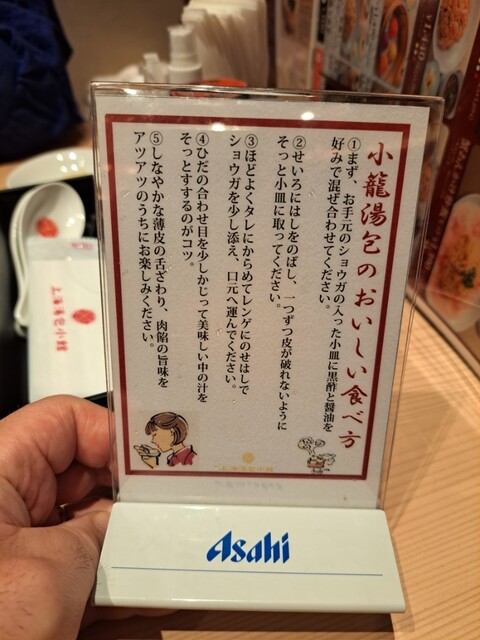 小籠湯包のおいしい食べ方
①まず、お手元のショウガの入った小皿に黒酢と醤油を
好みで混ぜ合わせてください。
②せいろにはしをのばし、一つずつ皮が破れないように
そっと小皿に取ってください。
③ほどよくタレにからめてレンゲにのせはしで
ショウガを少し添え、口元へ運んでください。
④ひだの合わせ目を少しかじって美味しい中の汁を
そっとすするのがコツ。
⑤しなやかな薄皮の舌ざわり、肉餡の旨味を
アツアツのうちにお楽しみください。
上海湯包小館
Asahi
上海湯包小館